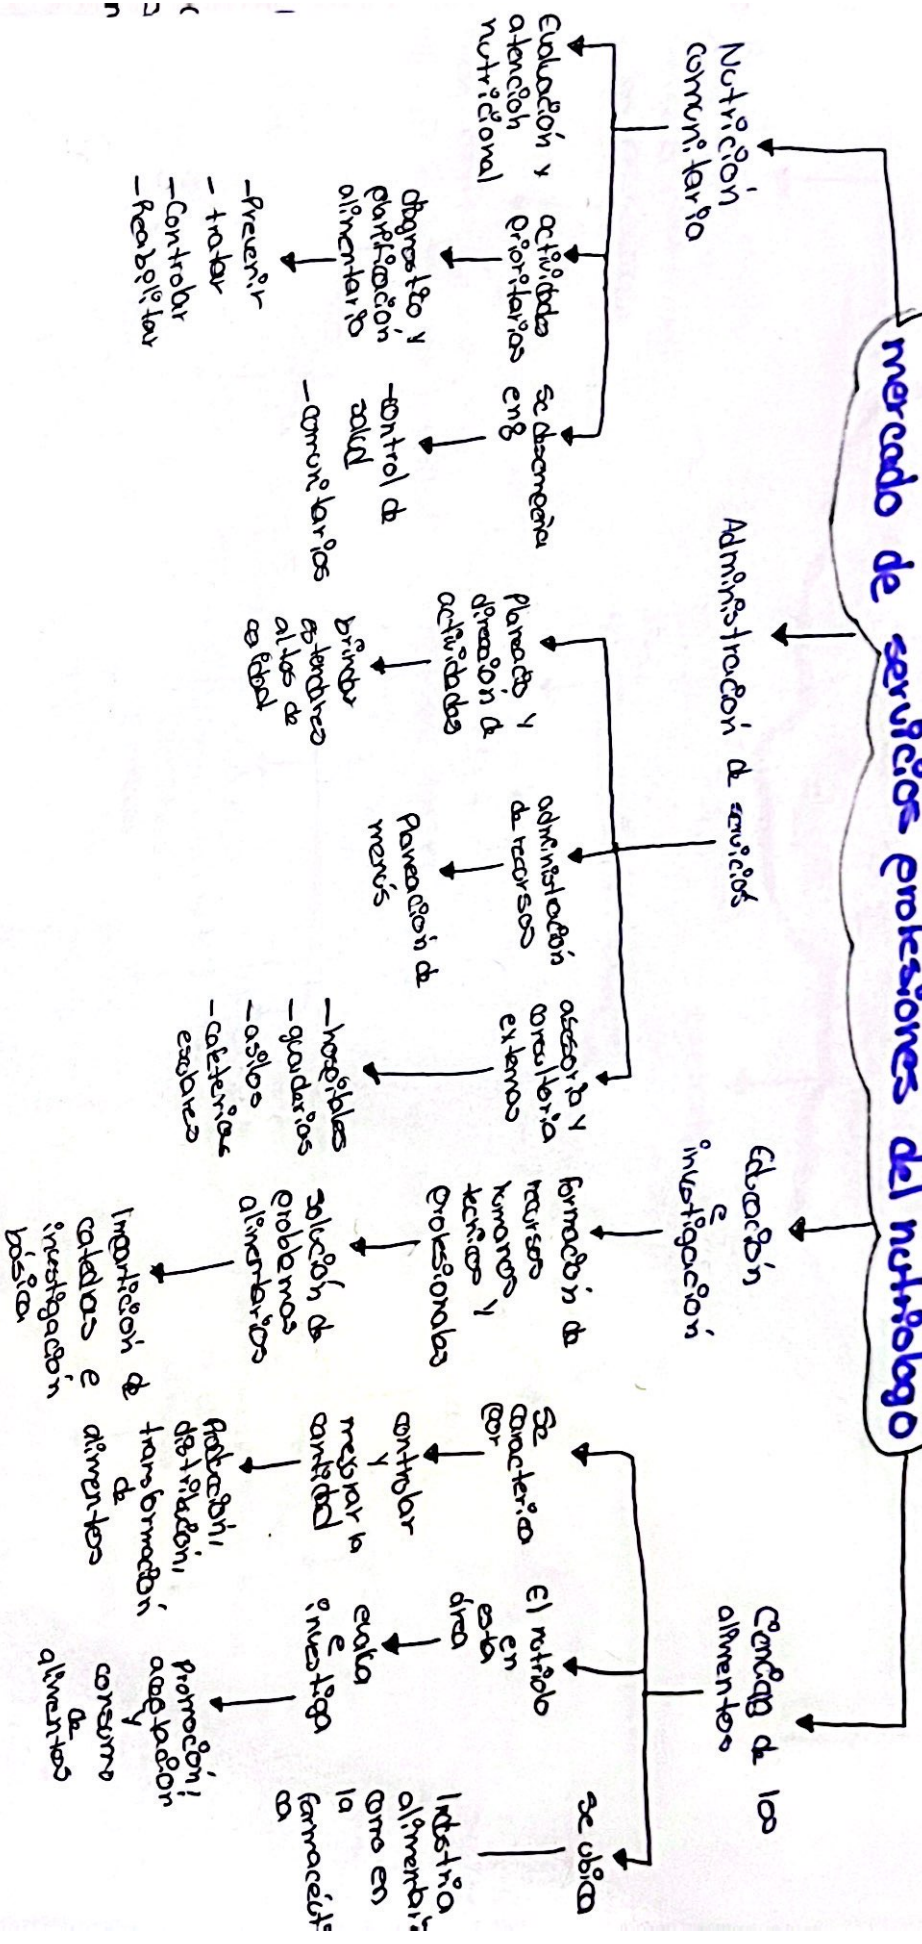 mercado de servicios profesiones del nutriologo
Nutrición
comunitaria
Evaluación y
atención
nutricional
actividades
prioritarias
diagnostico y
planificación
alimentario
-Prevenir
- tratar
-Controlar
-Reabilitar
se desempeña
en:
-control de
salud
-comunitarios
Administración de servicios
Planeacio y
dirección de
actividades
brindar
estandares
altos de
calidad
administración
de recursos
Planeación de
menús
asesoria y
consultoria
externas
-hospitales
-guarderias
-asilos
-cafeterias
escolares
Educación
e
investigación
formación de
recursos
humanos y
tecnicos y
profesionales
solución de
problemas
alimentarios
Impartición de
catedras e
investigación
básica
Ciencias de los
alimentos
Se
caracteriza
por
controlar
y
mejorar la
cantidad
Producción,
distribución,
transformación
de
alimentos
El nutriolo
en
esta
área
evalua
e
investiga
Promoción,
aceptación
y
consumo
de
alimentos
se ubica
Industria
alimentari
como en
la
farmacéuti
ca